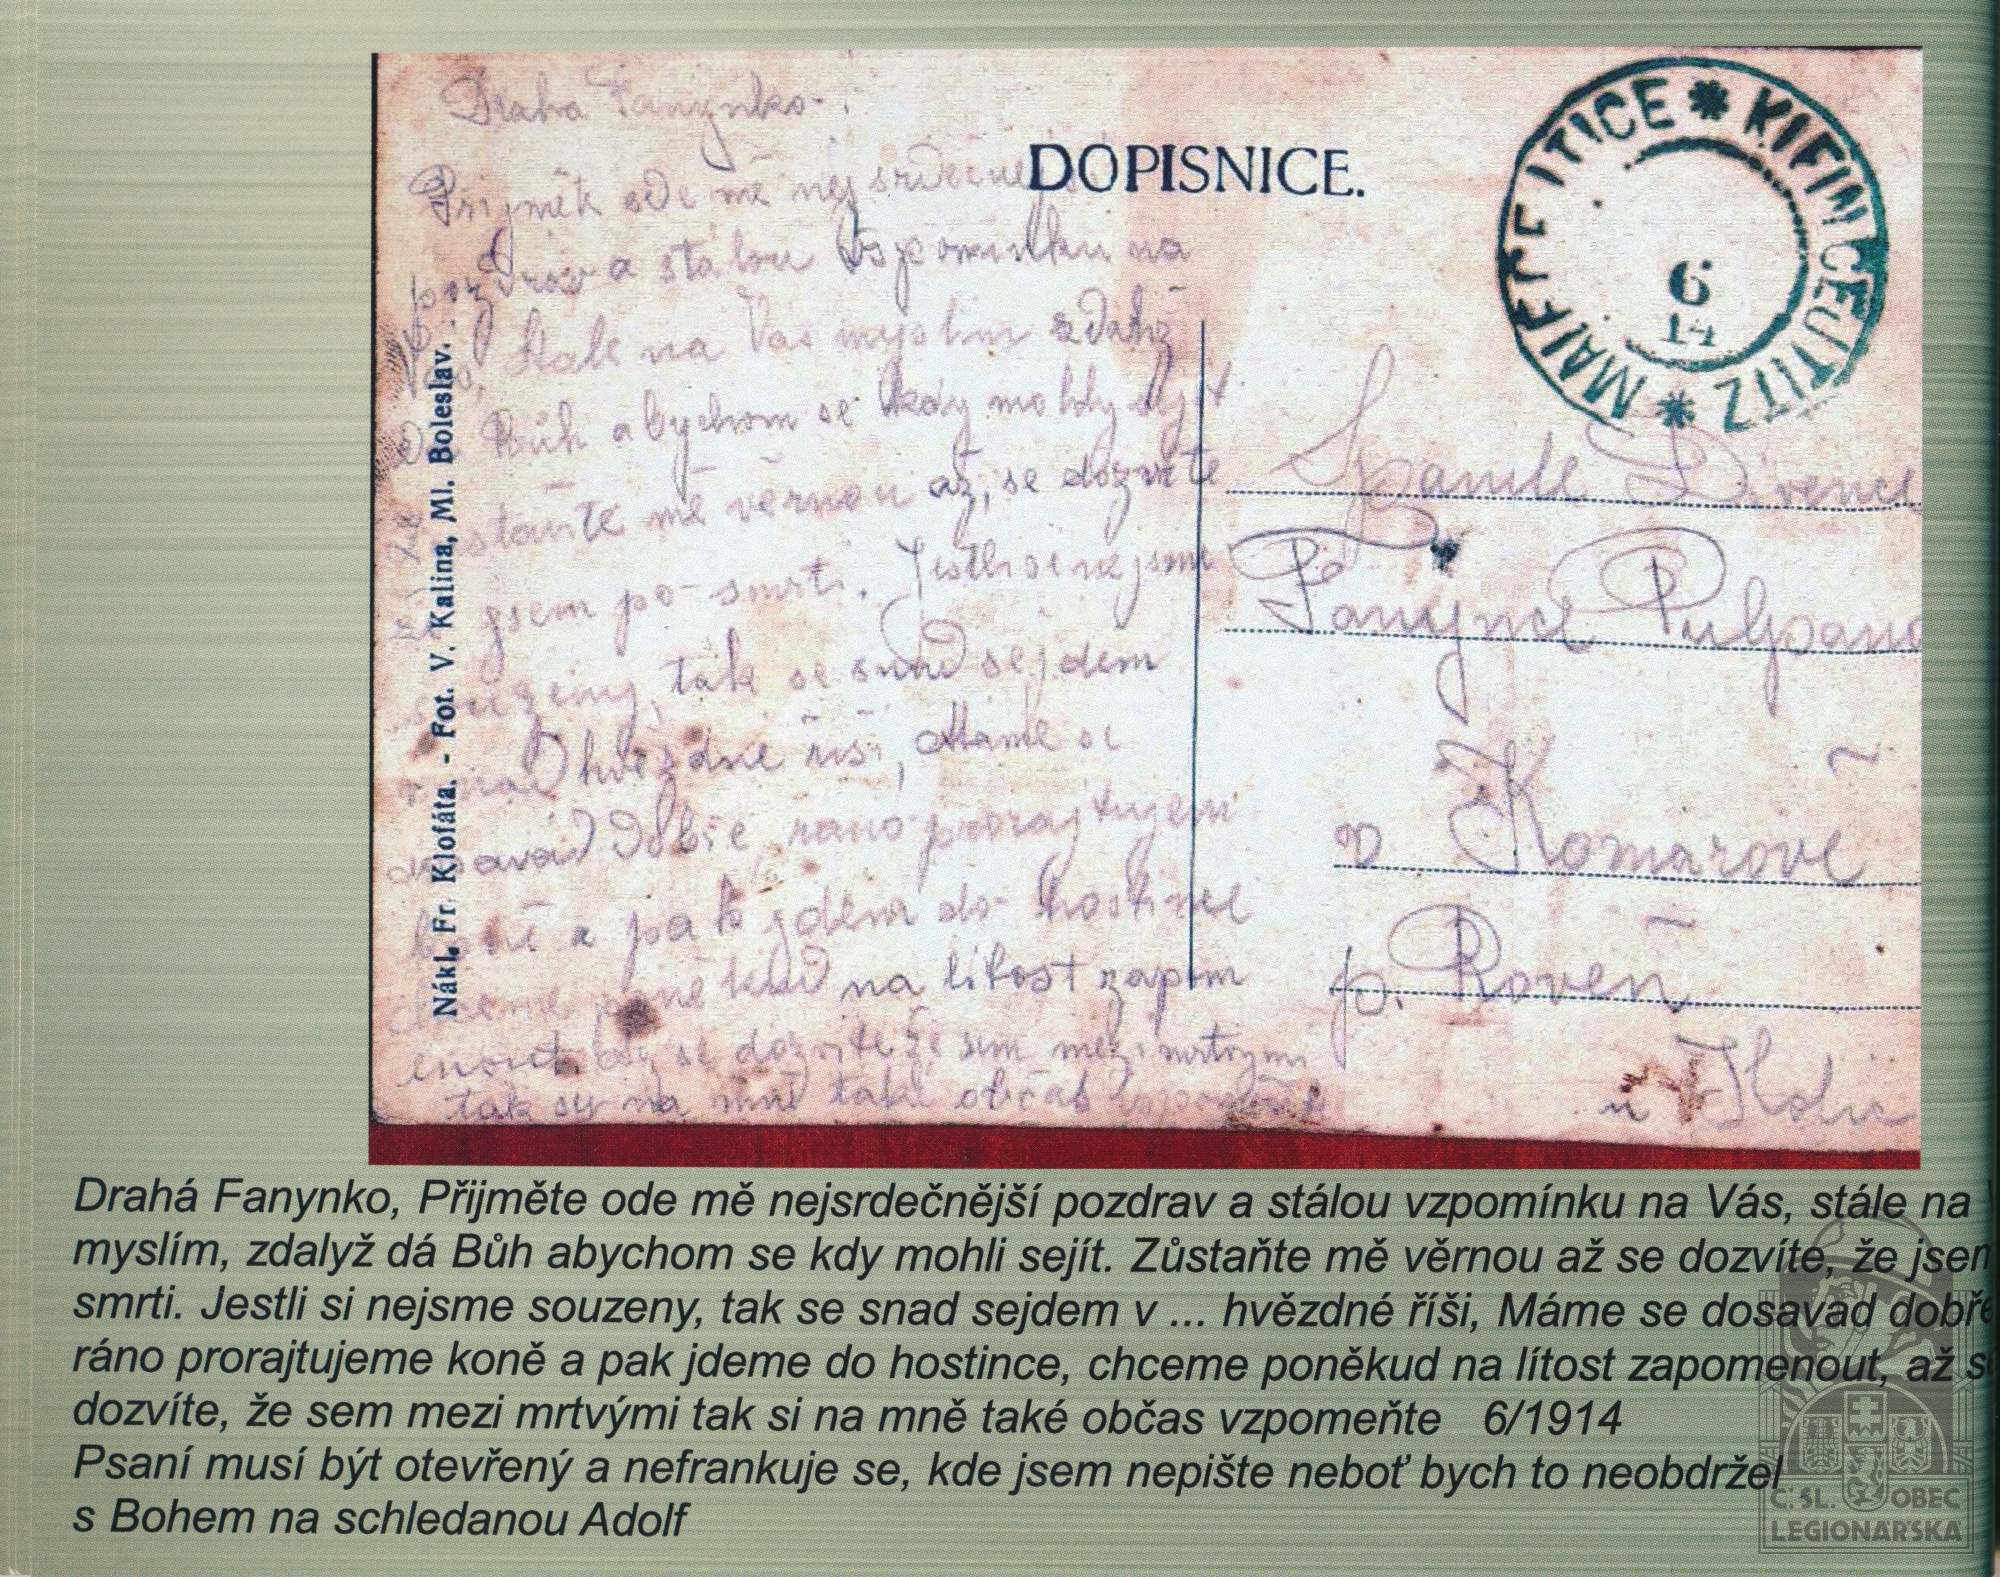 Draha Fanynko.
DOPISNICE.
Přijměte ode mě nejsrdečnejší
pozdrav a stálou vzpominku na
stale na Vás myslim zdaliž
Bůh abychom se kdy mohly sejt
stante mě věrnou až, se dozvite
jsem po smrti. Jestli si nejsme
tak se snad sejdem
hvězdné říši, Máme se
dosavad dobře rano prorajtujem
koně a pak jdem do hostince
chceme poněkud na litost zapom
enout, až se dozvite že sem mezi mrtvymi
tak sy na mně také občas vzpomeňte
Nákl. Fr. Klofáta. - Fot. V. Kalina, Ml. Boleslav.
6
14
Spanile Divence
Fanynce
v Komárově
p. Roveň
u Holic
Drahá Fanynko, Přijměte ode mě nejsrdečnější pozdrav a stálou vzpomínku na Vás, stále na
myslím, zdalyž dá Bůh abychom se kdy mohli sejít. Zůstaňte mě věrnou až se dozvíte, že jsem
smrti. Jestli si nejsme souzeny, tak se snad sejdem v ... hvězdné říši, Máme se dosavad dobře
ráno prorajtujeme koně a pak jdeme do hostince, chceme poněkud na lítost zapomenout, až se
dozvíte, že sem mezi mrtvými tak si na mně také občas vzpomeňte 6/1914
Psaní musí být otevřený a nefrankuje se, kde jsem nepište neboť bych to neobdržel
s Bohem na schledanou Adolf
Č. SL. OBEC
LEGIONÁŘSKÁ